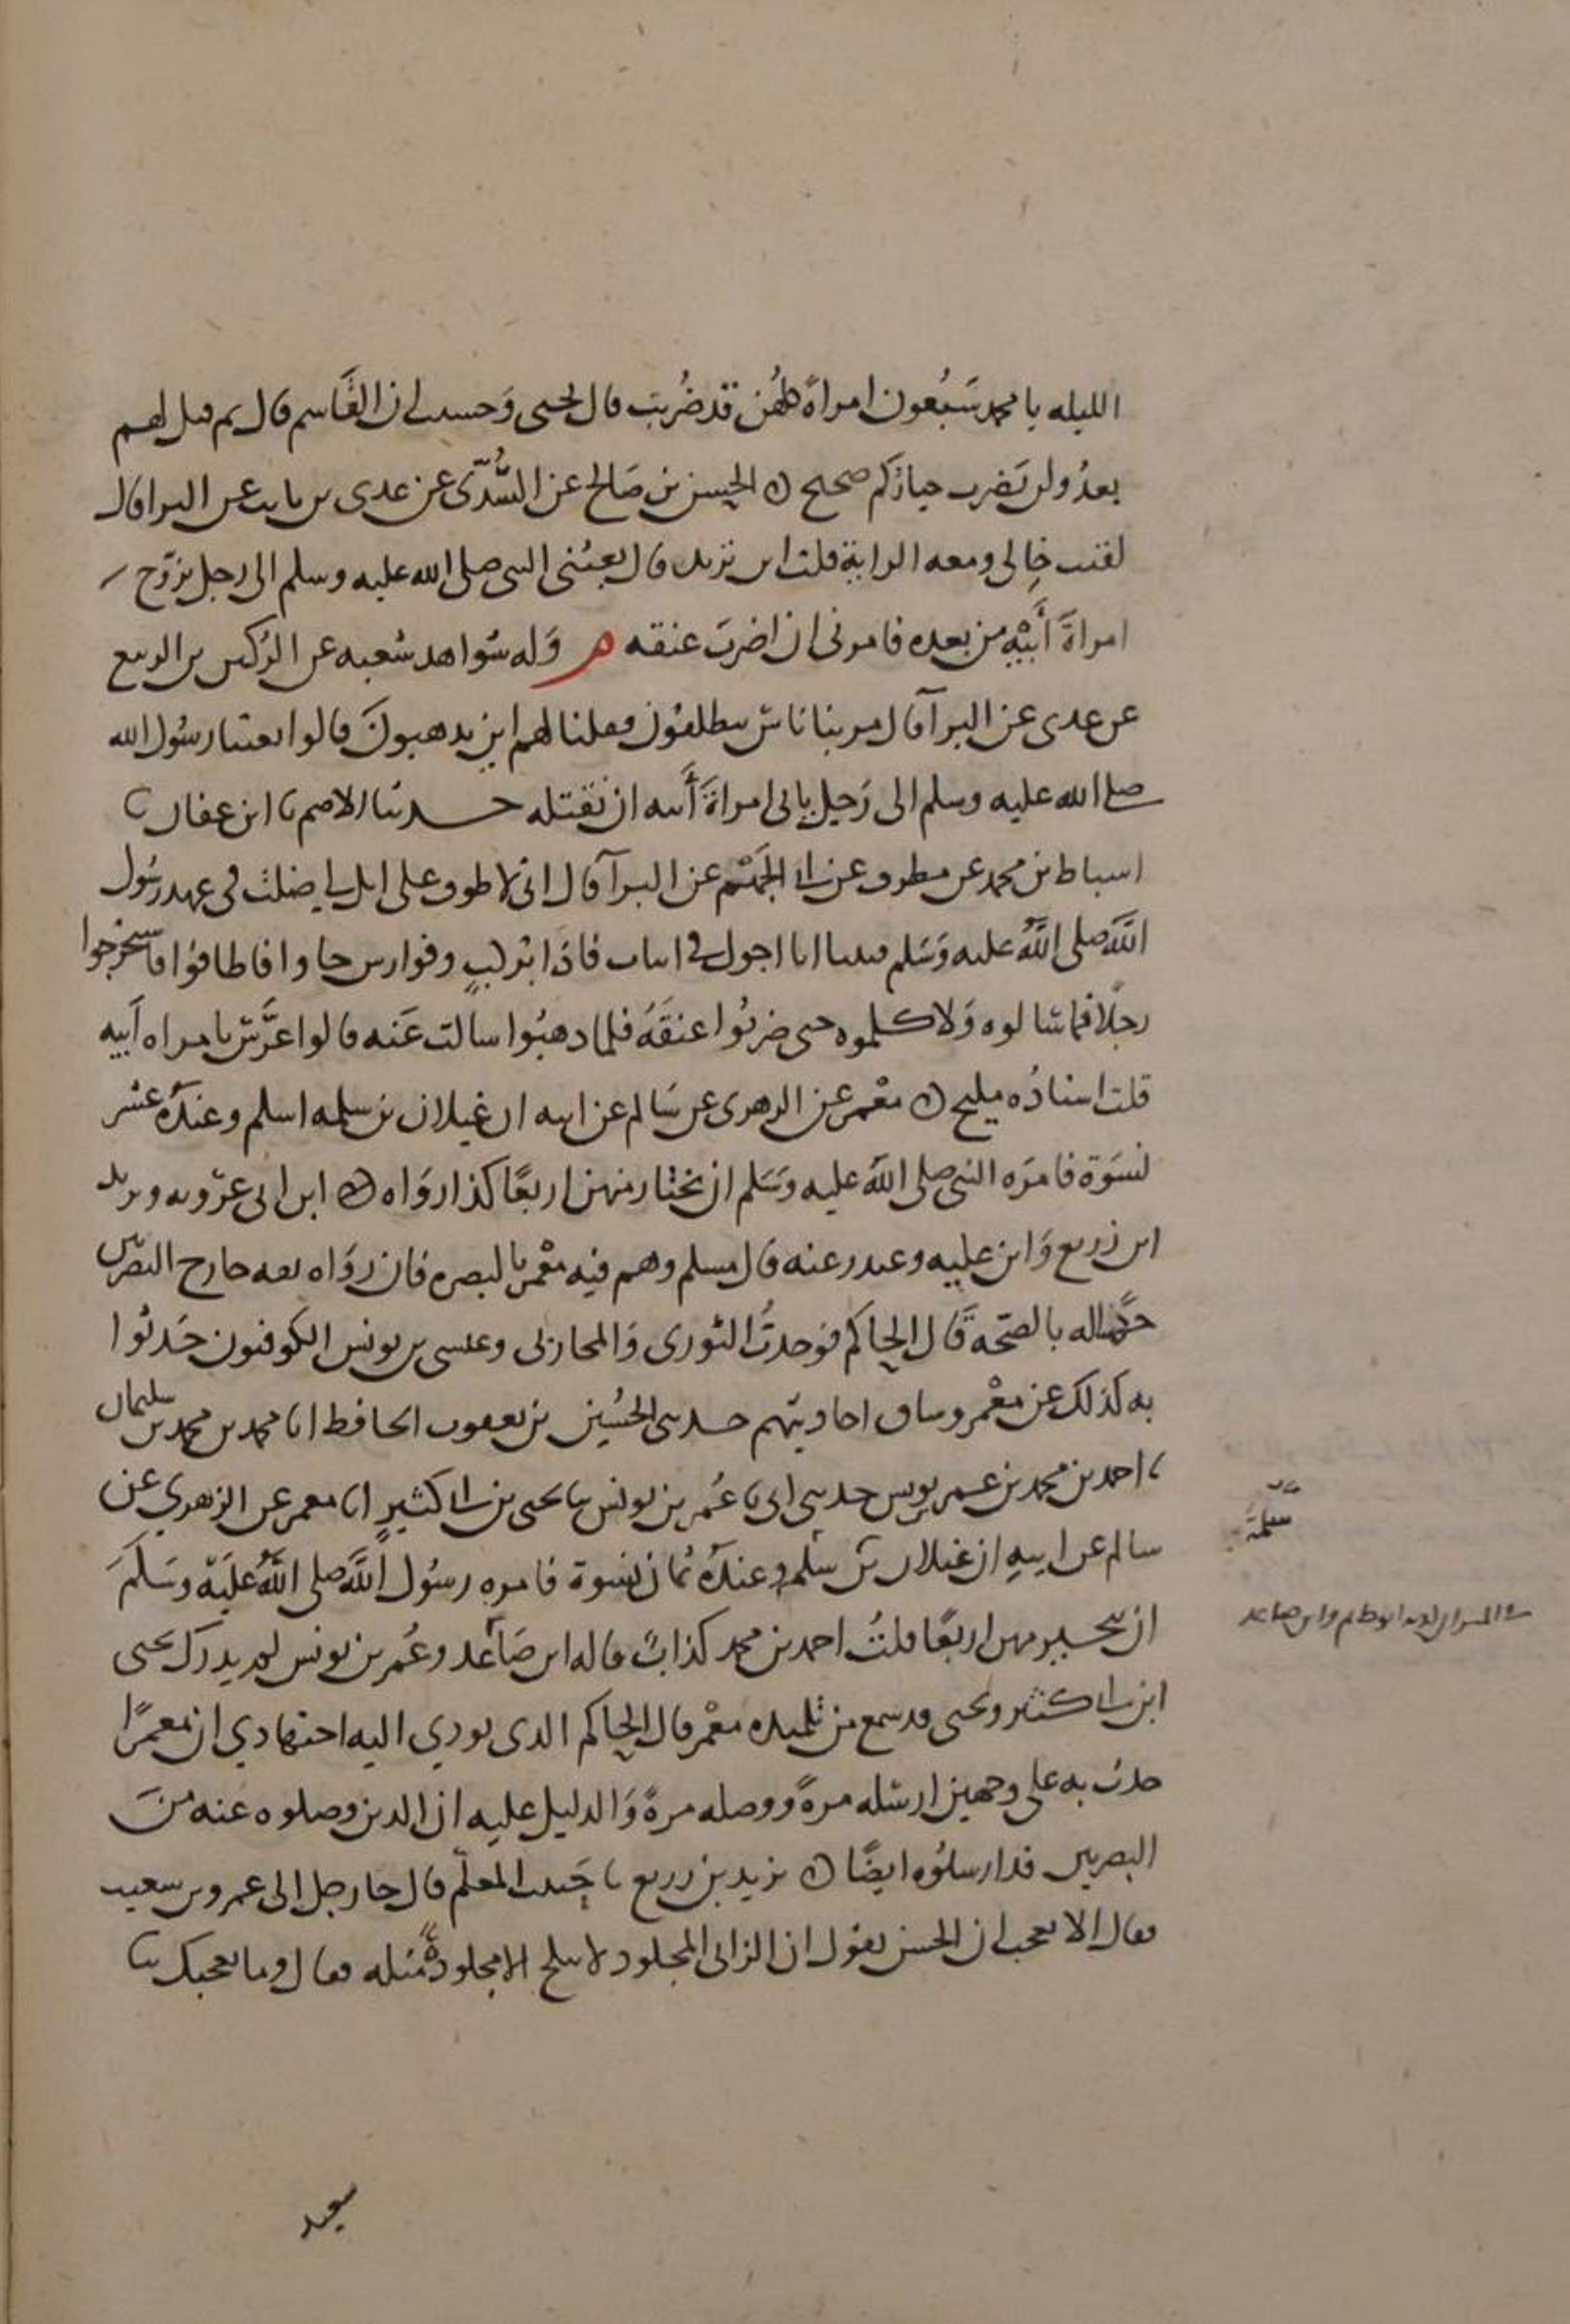 الليله يا محمد سَبْعون امراةً كلهُن قد ضُربت قال يحيى وَحسبت ان القَاسم قال ثم قيل لهم
بعدُ ولن يَضرب خياركم صحيح ن الحسن بن صَالح عن السُّدّى عن عدى بن ثابت عن البرا قال
لقيت خالى ومعه الراية قلت اين تريد قال بعثنى النبى صلى الله عليه وسلم الى رجل تزوّج
امراةَ أَبيْهِ من بعده فامرنى ان اضربَ عنقه م وَله شواهد شعبه عن الرُكين بن الربيع
عن عدى عن البرآ قال مر بنا ناسٌ ينطلقون فقلنا لهم اين يذهبونَ قالوا بعثنا رسُول الله
صلى الله عليه وسلم الى رَجل ياتى امراةَ أَبيه ان نَقتله حدثنا الاصم نا ابن عفان نا
اسباط بن محمد عن مطرف عن ابى الجَهْم عن البرآ قال انى لاطوف على ابل لى ضلت فى عهد رسُول
اللَّه صلى اللَّهُ عليه وَسَلم فبينا انا اجول فى ابيات فاذا بركبٍ وفوارس جاوا فاطافوا فاستخرجوا
رجلًا فما سالوه وَلا كلموه حتى ضربُوا عنقَهُ فلما ذهبُوا سالت عَنه قالوا عرَّس بامراه أبيه
قلت اسنادُه مليح ن معْمر عن الزهرى عن سَالم عن ابيه ان غيلان بن سلمه اسلم وعندَهُ عشر
نسوَة فامَره النبى صلى اللَّه عليه وَسَلم ان يختار منهن اربعًا كذا روَاه ن ابن ابى عرُوبه ويزيد
ابن زريع وَابن عليه وغندر عنه قال مسلم وهم فيه معْمر بالبصره فان روَاه ثقه خارج البصرين
حكمناله بالصّحه قَال الحاكم فوجدتُ الثورى وَالمحاربى وعيسى بن يونس الكوفيون حَدثُوا
به كذلك عن معْمر وساق احاديثهم حدثنى الحُسين بن يعقوب الحافظ انا محمد بن محمد بن سليمان
نا احمد بن محمد بن عمر بن يونس حدثنى ابى نا عُمر بن يونس نا يحيى بن ابى كثيرٍ انا معمر عن الزهري عن
سالم عن ابيهِ ان غيلان بن سَلمه وعندَهُ ثمان نسوة فامره رسُول اللَّه صلى اللَّهُ عَليَهْ وسَلَّمَ
ان يتخير منهن اربعًا قلتُ احمد بن محمد كذابٌ قاله ابن صَاعد وعُمر بن يونس لم يدرك يحيى
ابن ابى كثير ويحيى قد سمع من تلميذه معْمر قال الحاكم الذى يودي اليه اجتهادي ان معمرًا
حدث به على وجهين ارسَله مرةً ووصله مرةً وَالدليل عليه ان الذين وصلوه عنه منَ
البصريين قد ارسلوُه ايضًا ن يزيد بن زريع نا حَبيب المعلّم قال جا رجل الى عمرو بن شعيب
فقال الا تعجب ان الحسن يقول ان الزانى المجلود لا ينكح الا مجلودةً مثله فقال وما يعجبك نا
سعيد
سلمة